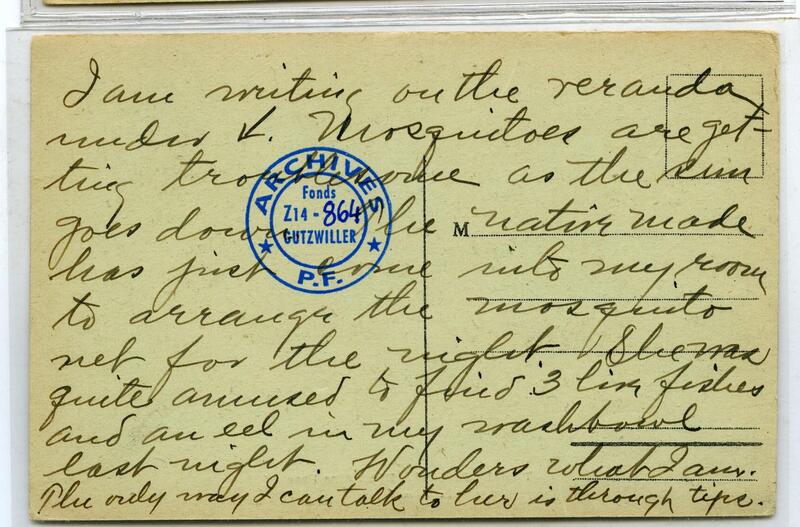 I am writing on the veranda
under V. Mosquitoes are get-
ting troublesome as the sun
goes down. The native made
has just come into my room
to arrange the mosquito
net for the night. She was
quite amused to find 3 live fishes
and an eel in my washbowl
last night. Wonders what I am.
The only way I can talk to her is through tips.
M
ARCHIVES
Fonds
Z14 - 864
GUTZWILLER
P.F.